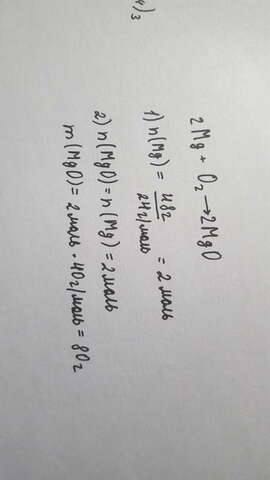 4)3
2Mg + O₂ → 2MgO
1) n(Mg) = 48г / 24г/моль = 2 моль
2) n(MgO) = n(Mg) = 2 моль
m(MgO) = 2 моль · 40г/моль = 80г